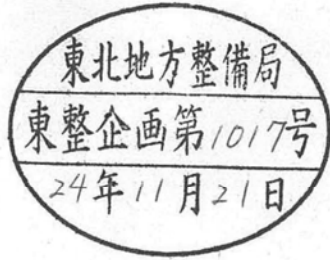 東北地方整備局
東整企画第1017号
24年11月21日